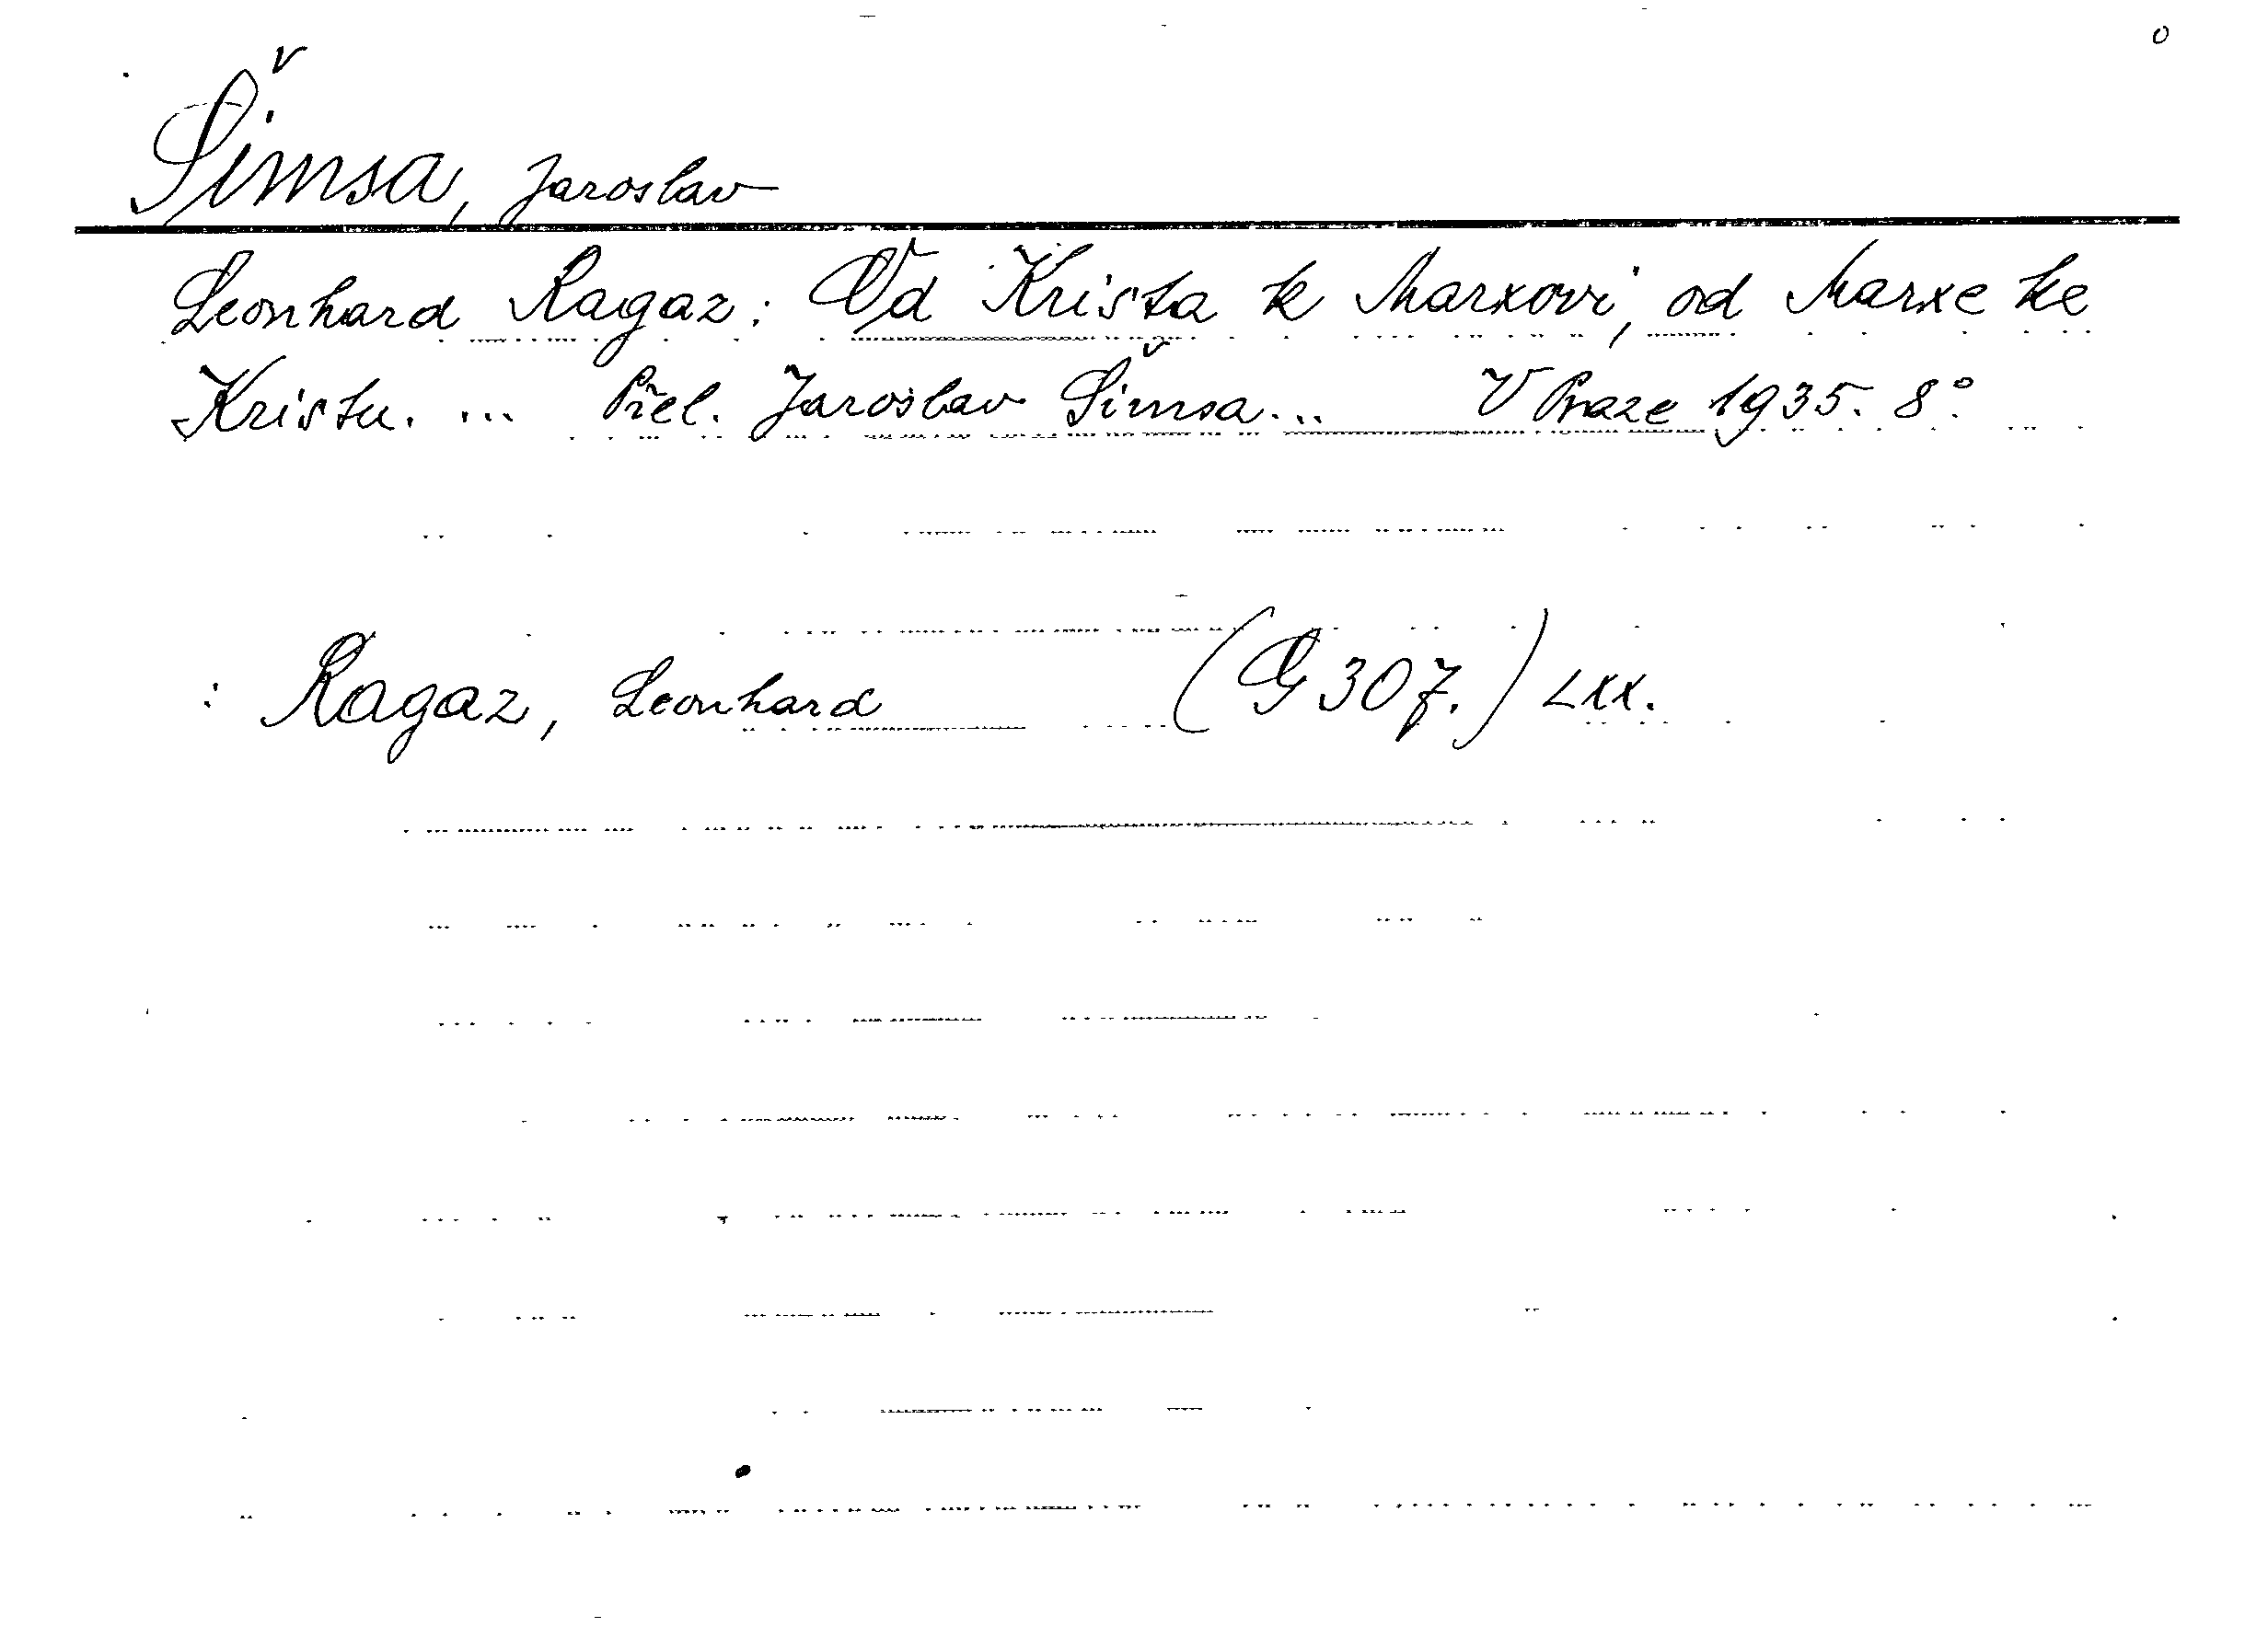 Šimsa, Jaroslav
Leonhard Ragaz: Od Krista k Marxovi, od Marxe ke
Kristu. ... Přel. Jaroslav Šimsa... V Praze 1935. 8°.
: Ragaz, Leonhard (G 307.) LXX.